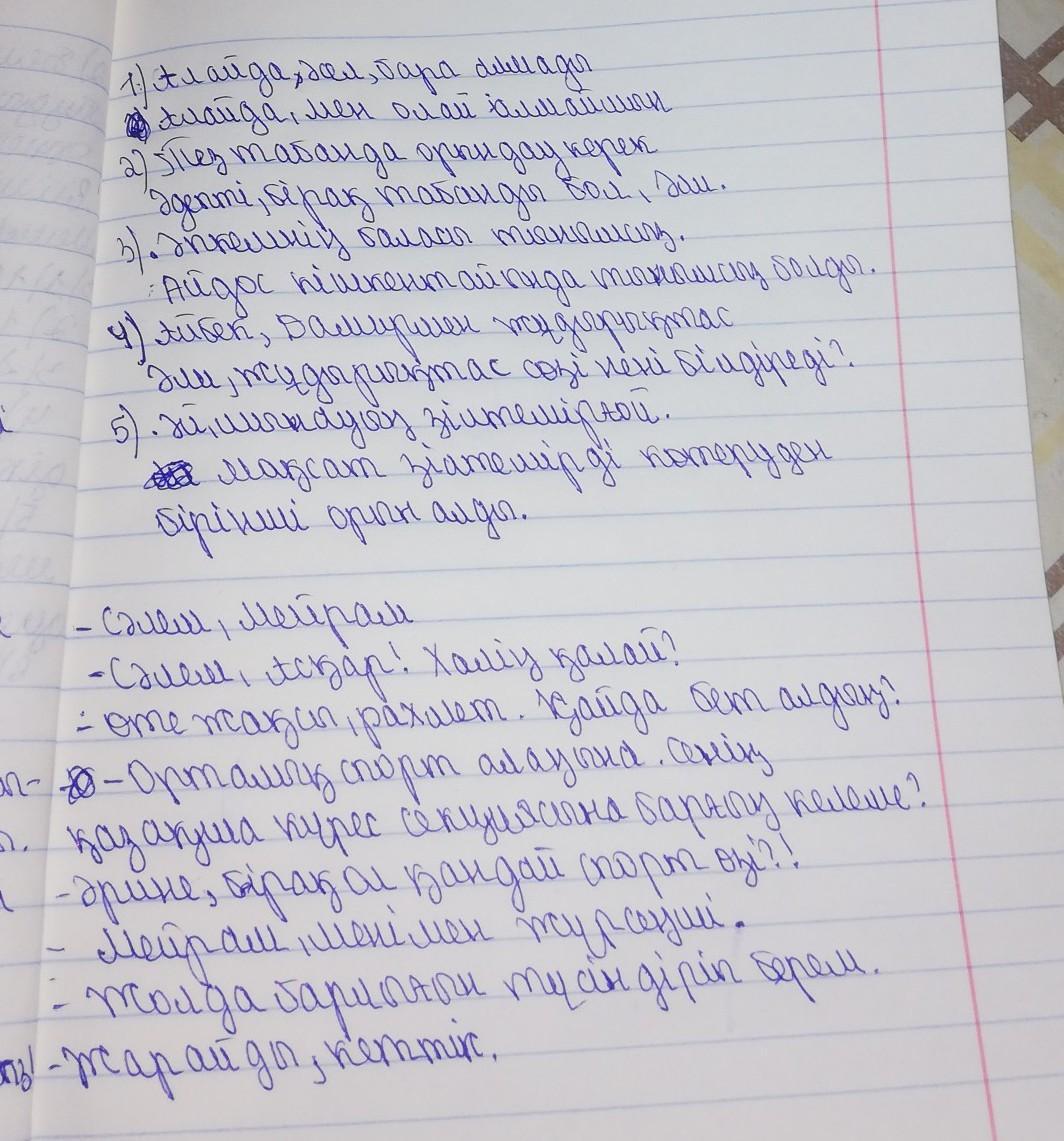 1.) Алайда, ол, бара алмады
Алайда, мен олай алмаймын
2) Тез табанда орындау керек
Әдепті, бірақ табанды бол, Әли.
3). Әпкемнің баласы тынымсыз.
Айдос кішкентайында тынымсыз болды.
4) Айбек, Дамирмен жұдырықтас
Әли, жұдырықтас сөзі нені білдіреді?
5). Әй, мынауыз зілтемірғой.
Мақсат зілтемірді көтеруден
бірінші орын алды.
- Сәлем, Мейрам
- Сәлем, Асқар! Халің қалай?
- Өте жақсы, рахмет. Қайда бет алдың?
- Орталық спорт алаңына. Сенің
қазақша күрес секциясына барғың келеме?
- Әрине, бірақ ол қандай спорт өзі?!
- Мейрам, менімен жүрсеңші.
- Жолда барлығын түсіндіріп берем.
- Жарайды, кеттік.